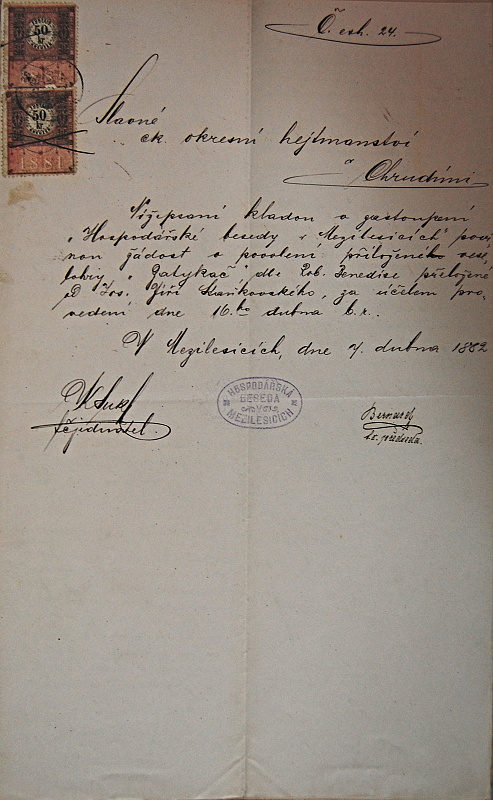 Č. exh. 24.
50
kr
50
kr
1881
Slavné
ck. okresní hejtmanství
v Chrudimi
Nížepsaní kladou v zastoupení
„Hospodářské besedy v Mezilesicích" povi-
nou žádost o povolení přiloženého vese-
lohry „Zatykač" dle Rod. Benedixe přeložené
od Jos. Jiří Stankovského, za účelem pro-
vedení dne 16.ho dubna t. r.
V Mezilesicích, dne 4. dubna 1882
HOSPODÁŘSKÁ
BESEDA
V
MEZILESICÍCH
jednatel.
předseda.